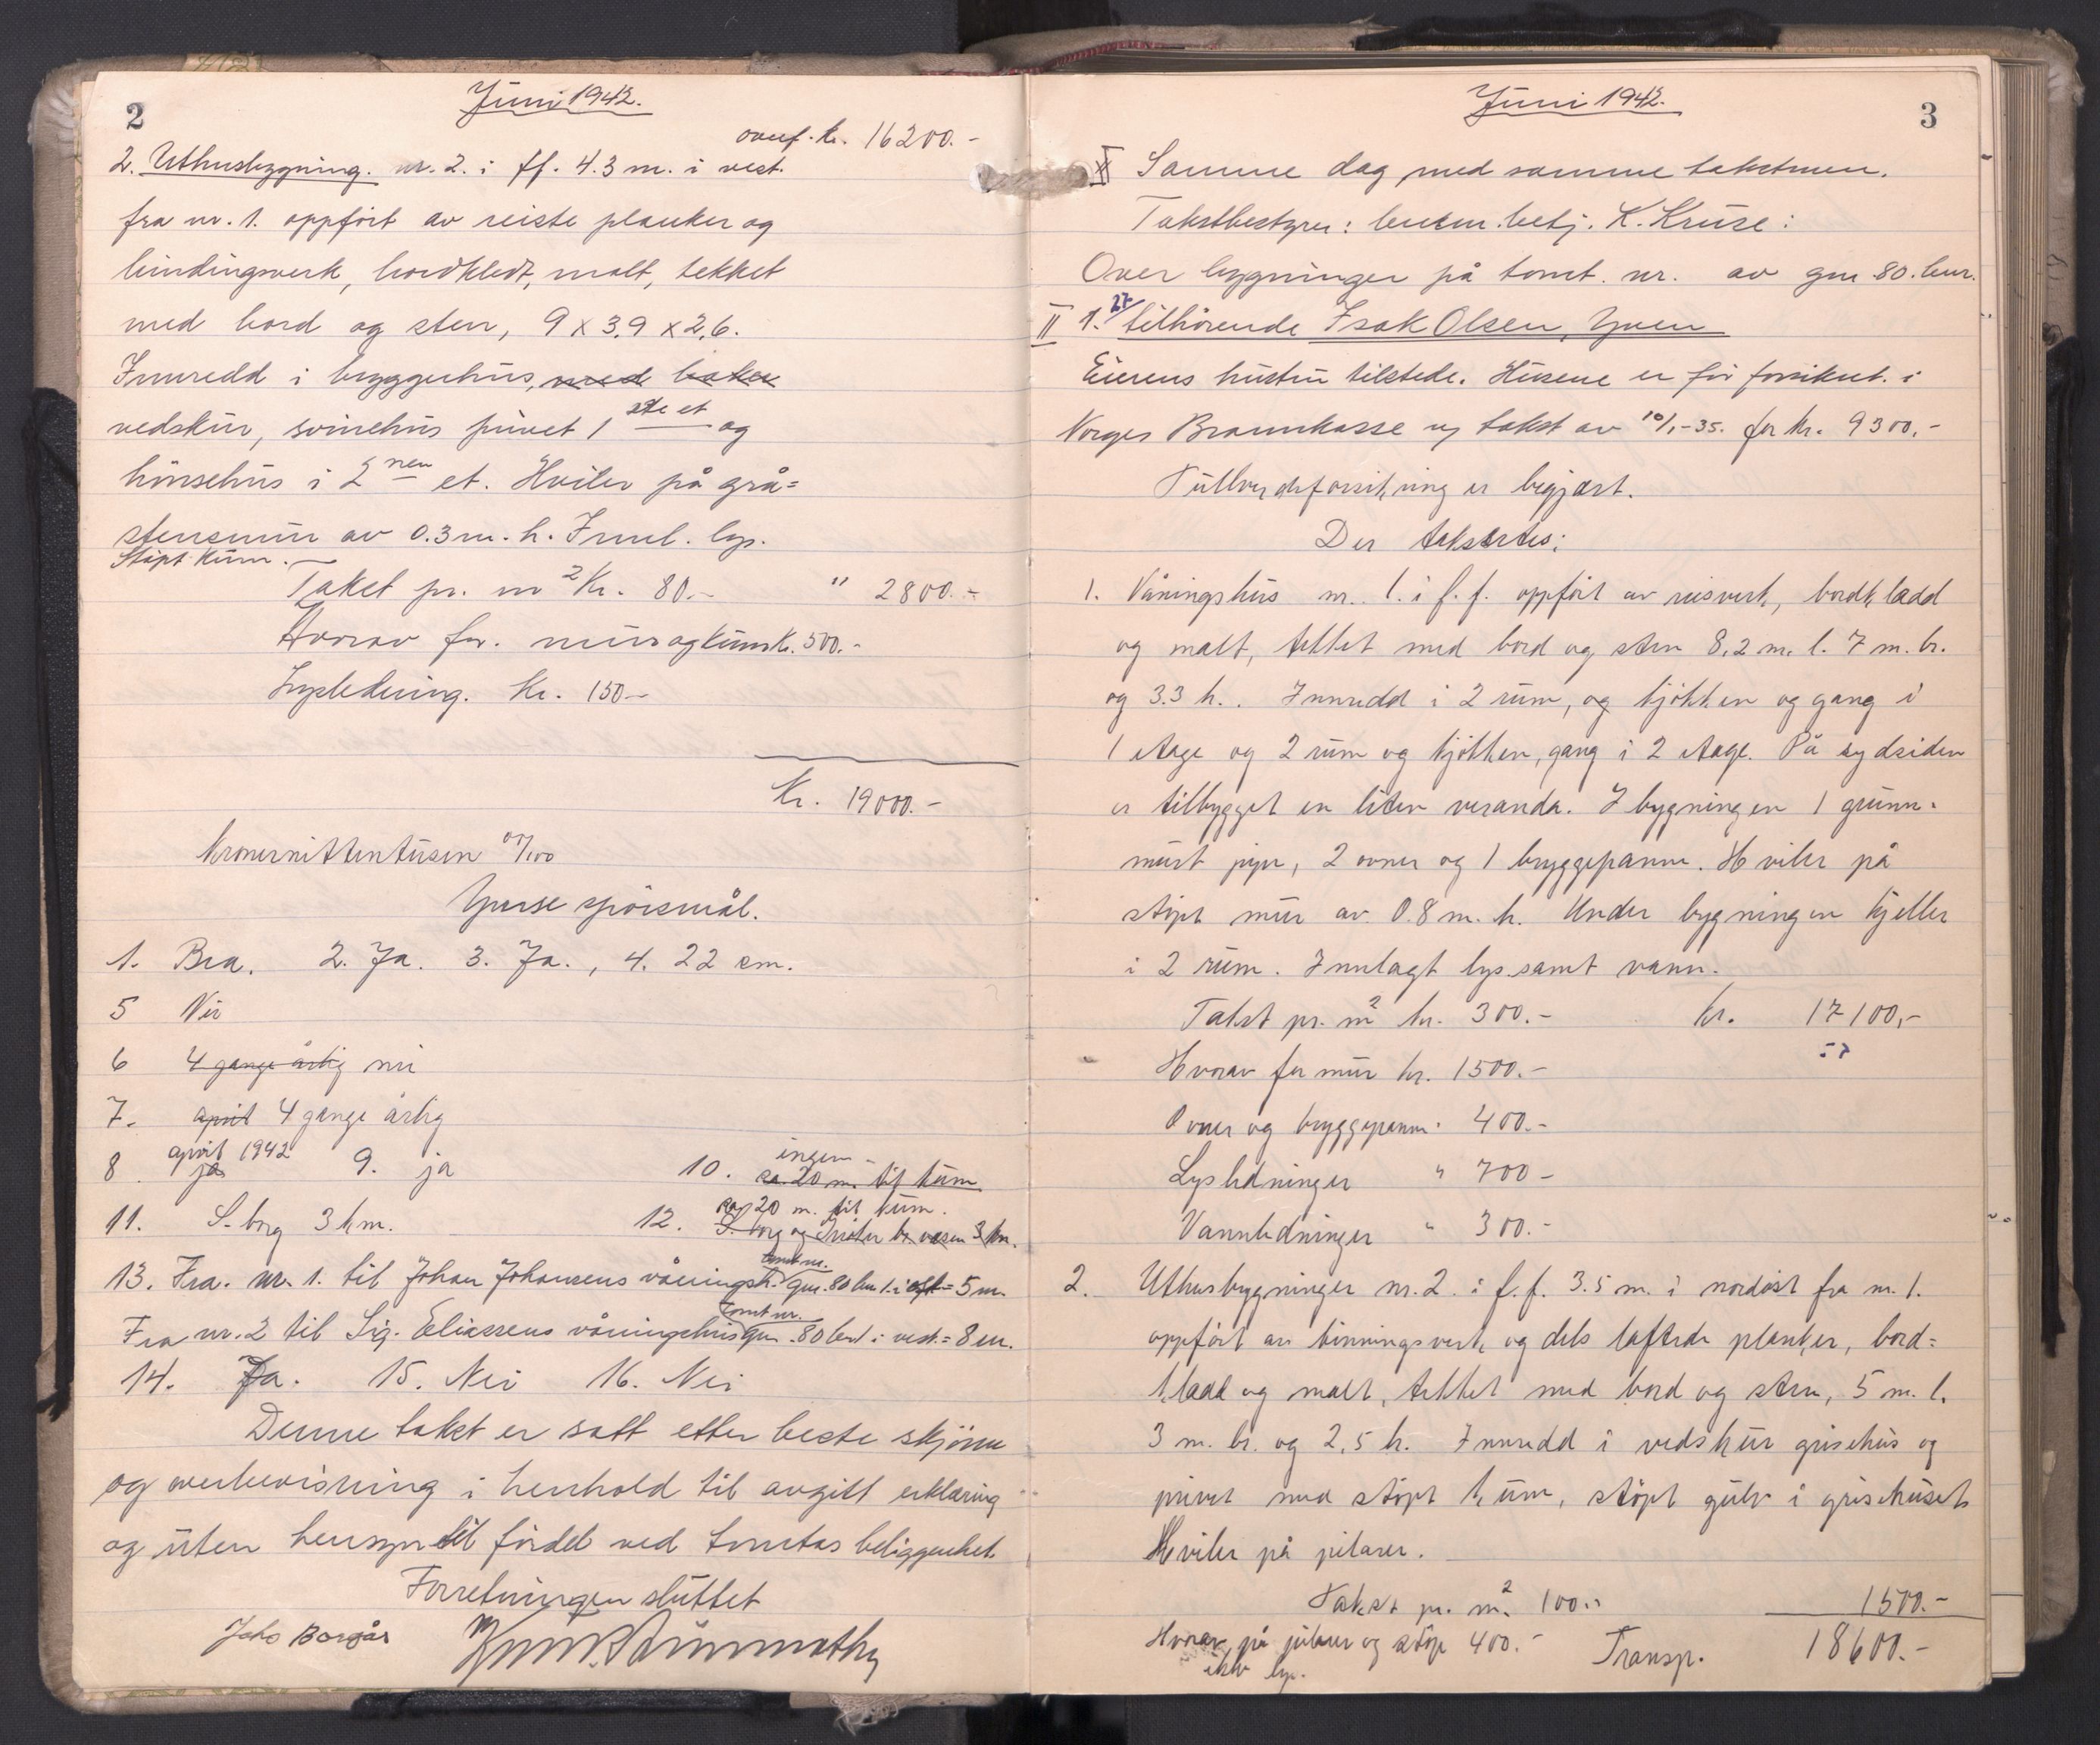 2
Juni 1942.
overf. kr. 16200.-
2. Uthusbygning. nr. 2. i ff. 4.3 m. i vest.
fra nr. 1. oppført av reiste planker og
bindingsverk, bordkledt, malt, tekket
med bord og sten, 9 x 3.9 x 2,6.
Innredd i bryggerhus, med baker
vedskur, svinehus privet 1 ste et og
hønsehus i 2 nen et. Hviler på grå=
stensmur av 0.3 m. h. Innl. lys.
Støpt kum.
Takst pr. m2 Kr. 80.- " 2800.-
Hvorav for mur og kum kr. 500.-
Lysledning. kr. 150-
Kr. 19000.-
Kronernittentusen 00/100
Ymse spørsmål.
1. Bra. 2. Ja. 3. Ja., 4. 22 cm.
5 Nei
6 4 gange årlig nei
7. april 4 gange årlig
april 1942
8. ja 9. ja 10. ca. 20 m. til kum ingen -
11. S-borg 3 km. 12. ca 20 m. til kum.
13. Fra. nr. 1. til Johan Johansens våningsh. tomt nr. gnr. 80 bnr 1. i øst = 5 m.
Fra nr. 2 til Sig. Eliassens våningshus tomt nr. gnr. 80 bnr 1 i vest. = 8 m.
14. Ja. 15. Nei 16. Nei
Denne takst er satt etter beste skjønn
og overbevisning i henhold til avgitt erklæring
og uten hensyn til fordel ved tomtas beliggenhet.
Forretningen sluttet
Joho Borgår
3
Juni 1942.
II Samme dag med samme takstmen.
Takstbestyrer: lensm. betj. K. Kruse:
Over bygninger på tomt. nr. av gnr. 80. bnr.
II 1. 27/ tilhørende Isak Olsen, Yven
Eierens hustru tilstede. Husene er før forsikret. i
Norges Brannkasse ny takst av 10/1-35. for kr. 9300,-
Fullverdiforsikring er begjært.
Der takstertes:
1. Våningshus nr. 1. i f.f. oppført av reisverk, bordkladd
og malt, tekket med bord og sten 8,2 m. l. 7 m. br.
og 3.3 h.. Innredd i 2 rum, og kjøkken og gang i
1 etage og 2 rum og kjøkken, gang i 2 etage. På sydsiden
er tilbygget en liten veranda. I bygningen 1 grunn-
murt pipe, 2 ovner og 1 bryggepanne. Hviler på
støpt mur av 0.8 m. h. Under bygningen kjeller
i 2 rum. Innlagt lys samt vann.
Takst pr. m2 kr. 300.- kr. 17100,-
57
Hvorav for mur kr. 1500.-
Ovner og bryggepanne " 400.-
Lysledninger " 700-
Vannledninger " 300.-
2. Uthusbygninger nr. 2 i f.f. 3.5 m. i nordøst fra nr. 1.
oppført av binningsverk og dels laftede planker, bord=
kladd og malt, tekket med bord og sten, 5 m. l.
3 m. br. og 2,5 h. Innredd i vedskur grisehus og
privet med støpt kum, støpt gulv i grisehuset
Hviler på pilarer.
Takst pr. m.2 100.- 1500.-
Hvorav på pilarer og støp 400.- Transp. 18600.-
ikke lys.